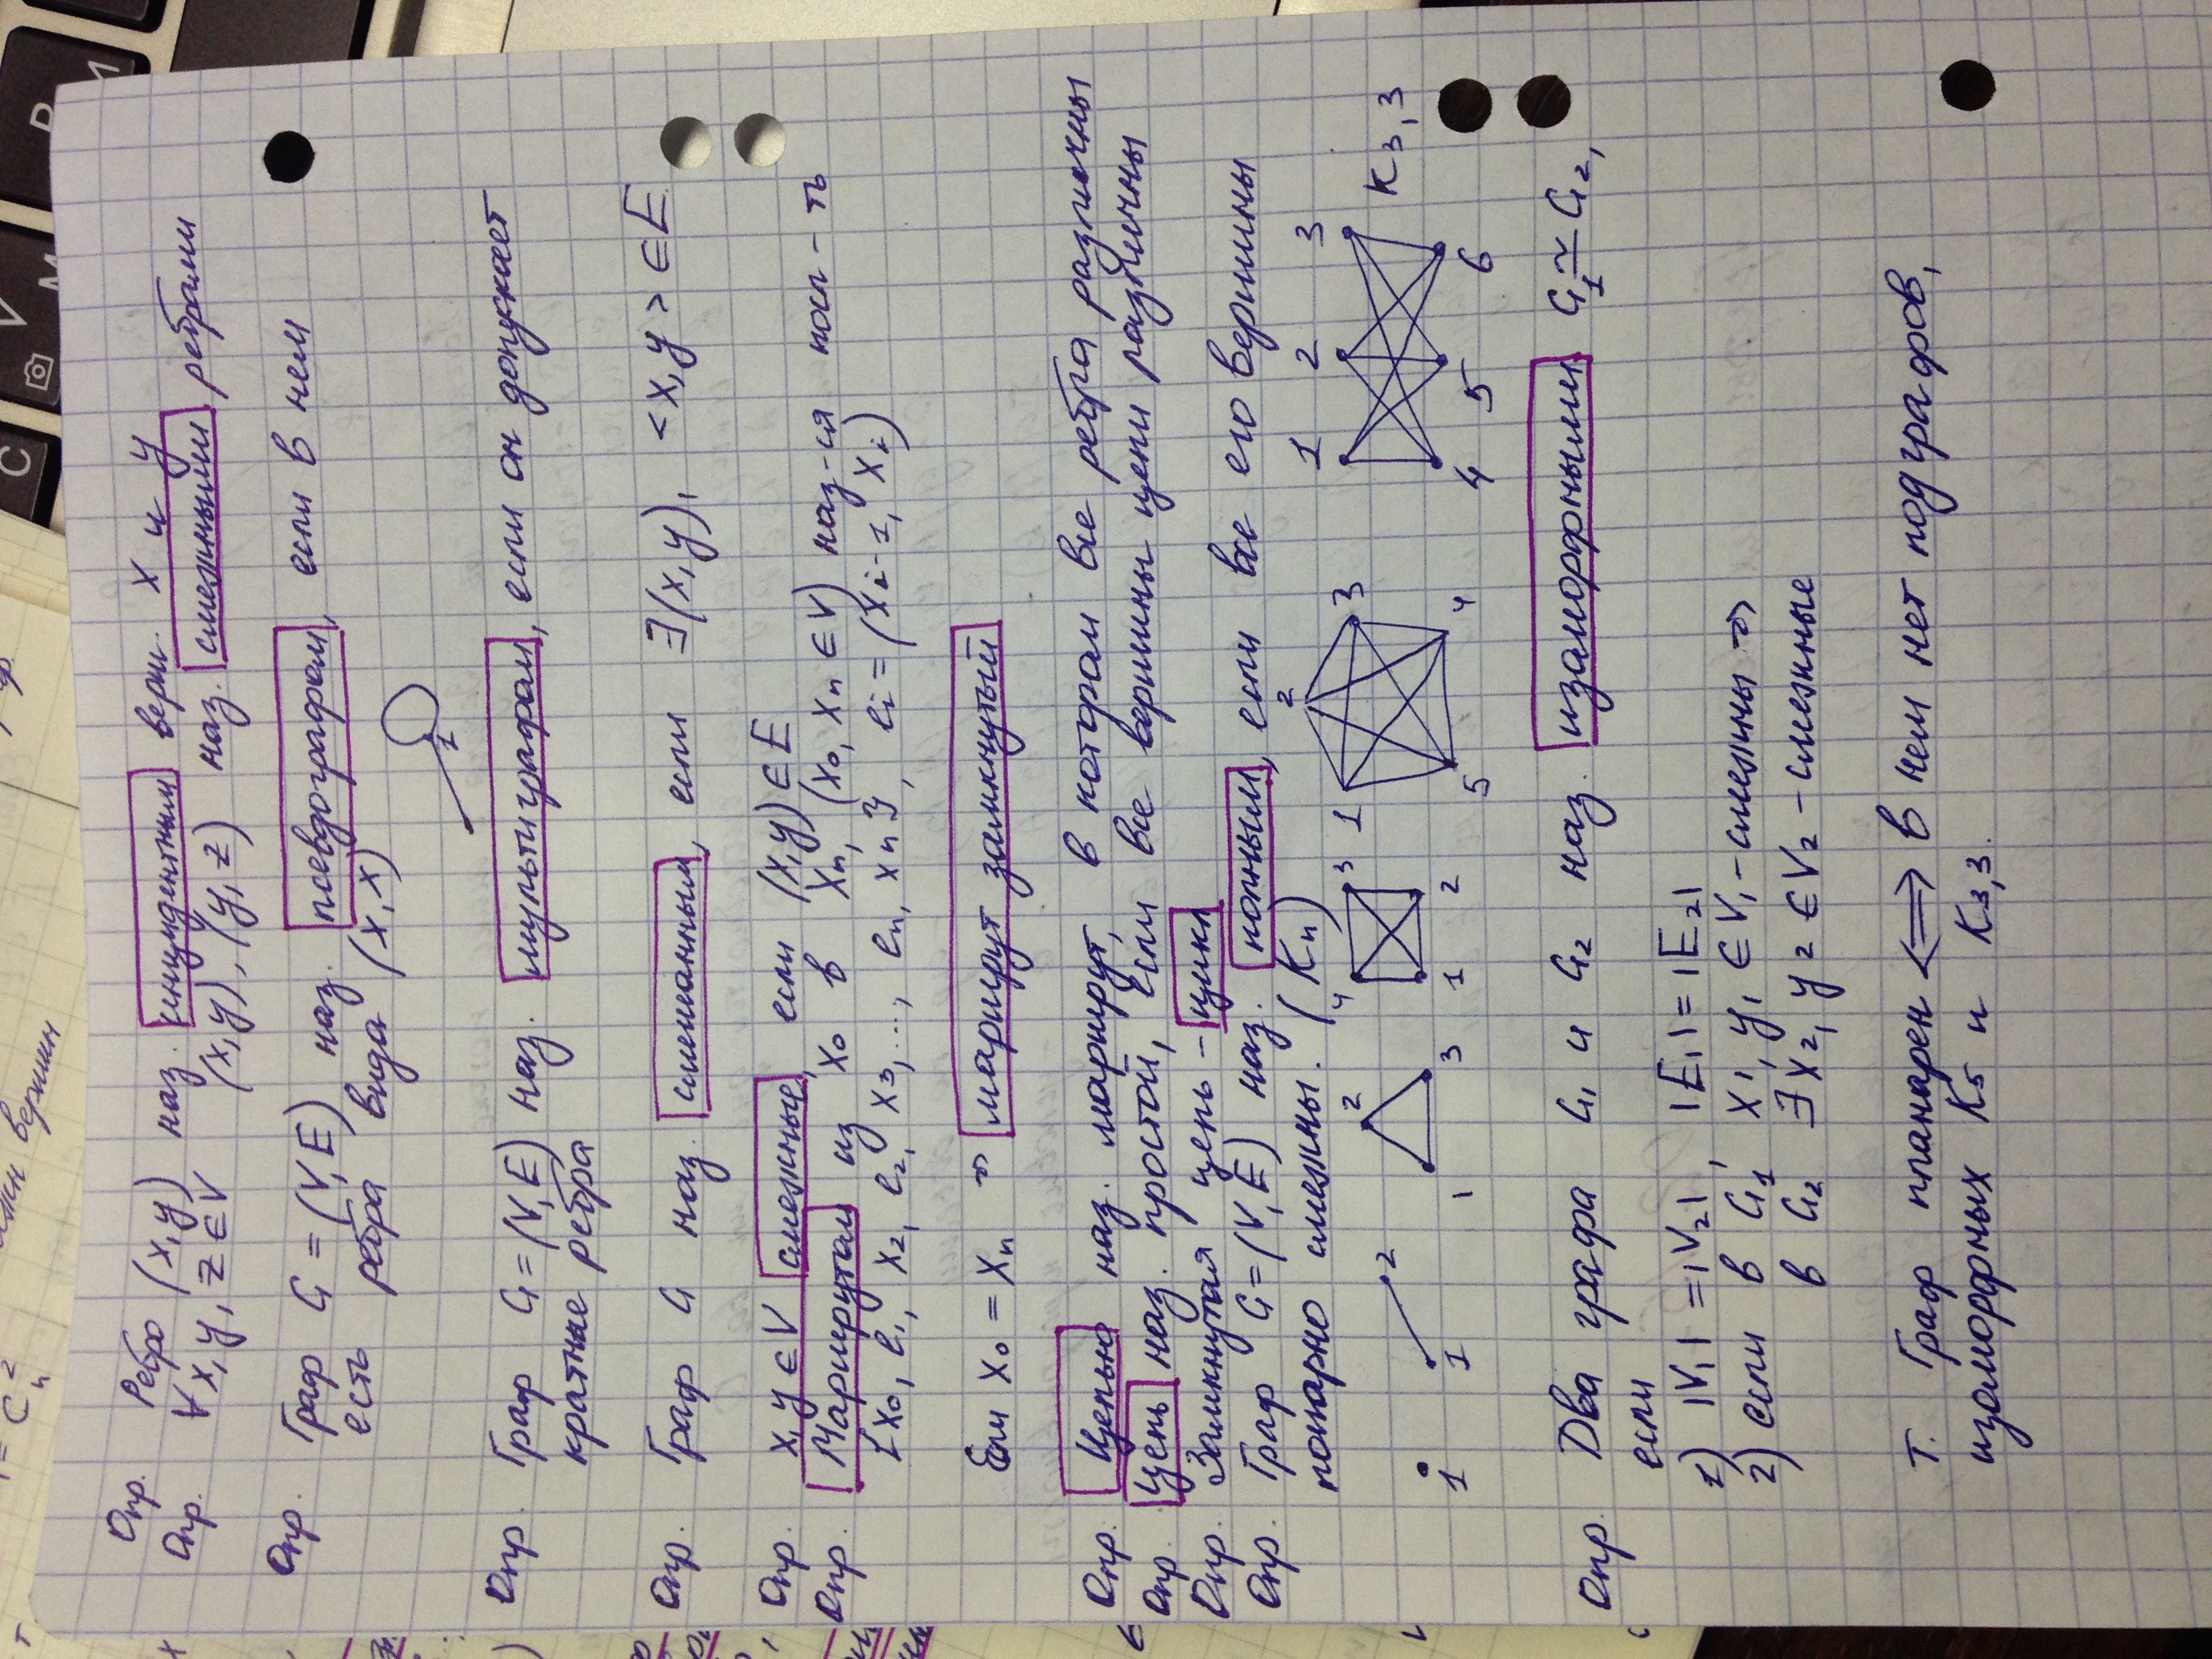 Опр. Ребро (x,y) наз. инцидентным верш. x и y
Опр. ∀ x, y, z ∈ V (x,y), (y,z) наз. смежными ребрами
Опр. Граф G = (V,E) наз. псевдографом, если в нем
есть ребра вида (x,x)
Опр. Граф G = (V,E) наз. мультиграфом, если он допускает
кратные ребра
Опр. Граф G наз. смешанным, если ∃(x,y), <x,y> ∈ E
Опр. x,y ∈ V смежные, если (x,y) ∈ E
Опр. Маршрутом из x₀ в xₙ, (x₀, xₙ ∈ V) наз-ся посл-ть
{x₀, e₁, x₂, e₂, x₃, ..., eₙ, xₙ}, eᵢ = (xᵢ₋₁, xᵢ)
Если x₀ = xₙ ⇒ маршрут замкнутый
Опр. Цепью наз. маршрут, в котором все ребра различны
Опр. Цепь наз. простой, если все вершины цепи различны
Опр. Замкнутая цепь - цикл
Опр. Граф G=(V,E) наз. полным, если все его вершины
попарно смежны. (Kₙ)
1
1 2
1 2 3
4 3 1 2
1 2 3 4 5
1 2 3 4 5 6 K₃,₃
Опр. Два графа G₁ и G₂ наз. изаморфными G₁ ≃ G₂,
если
1) |V₁| = |V₂| |E₁| = |E₂|
2) если в G₁ x₁, y₁ ∈ V₁ - смежны ⇒
в G₂ ∃ x₂, y₂ ∈ V₂ - смежные
Т. Граф планарен ⟺ в нем нет подграфов,
изоморфных K₅ и K₃,₃.